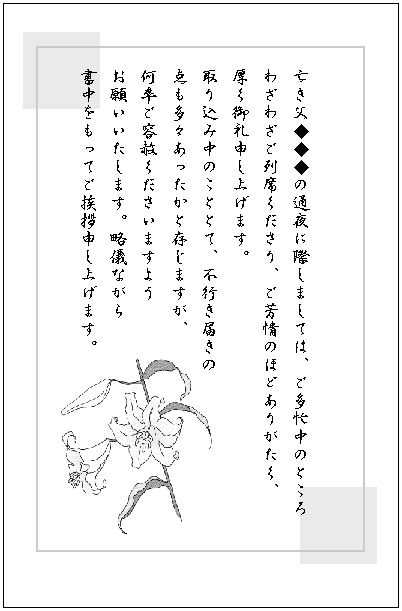 亡き父◆◆◆の通夜に際しましては、ご多忙中のところ
わざわざご列席くださり、ご芳情のほどありがたく、
厚く御礼申し上げます。
取り込み中のこととて、不行き届きの
点も多々あったかと存じますが、
何卒ご容赦くださいますよう
お願いいたします。略儀ながら
書中をもってご挨拶申し上げます。